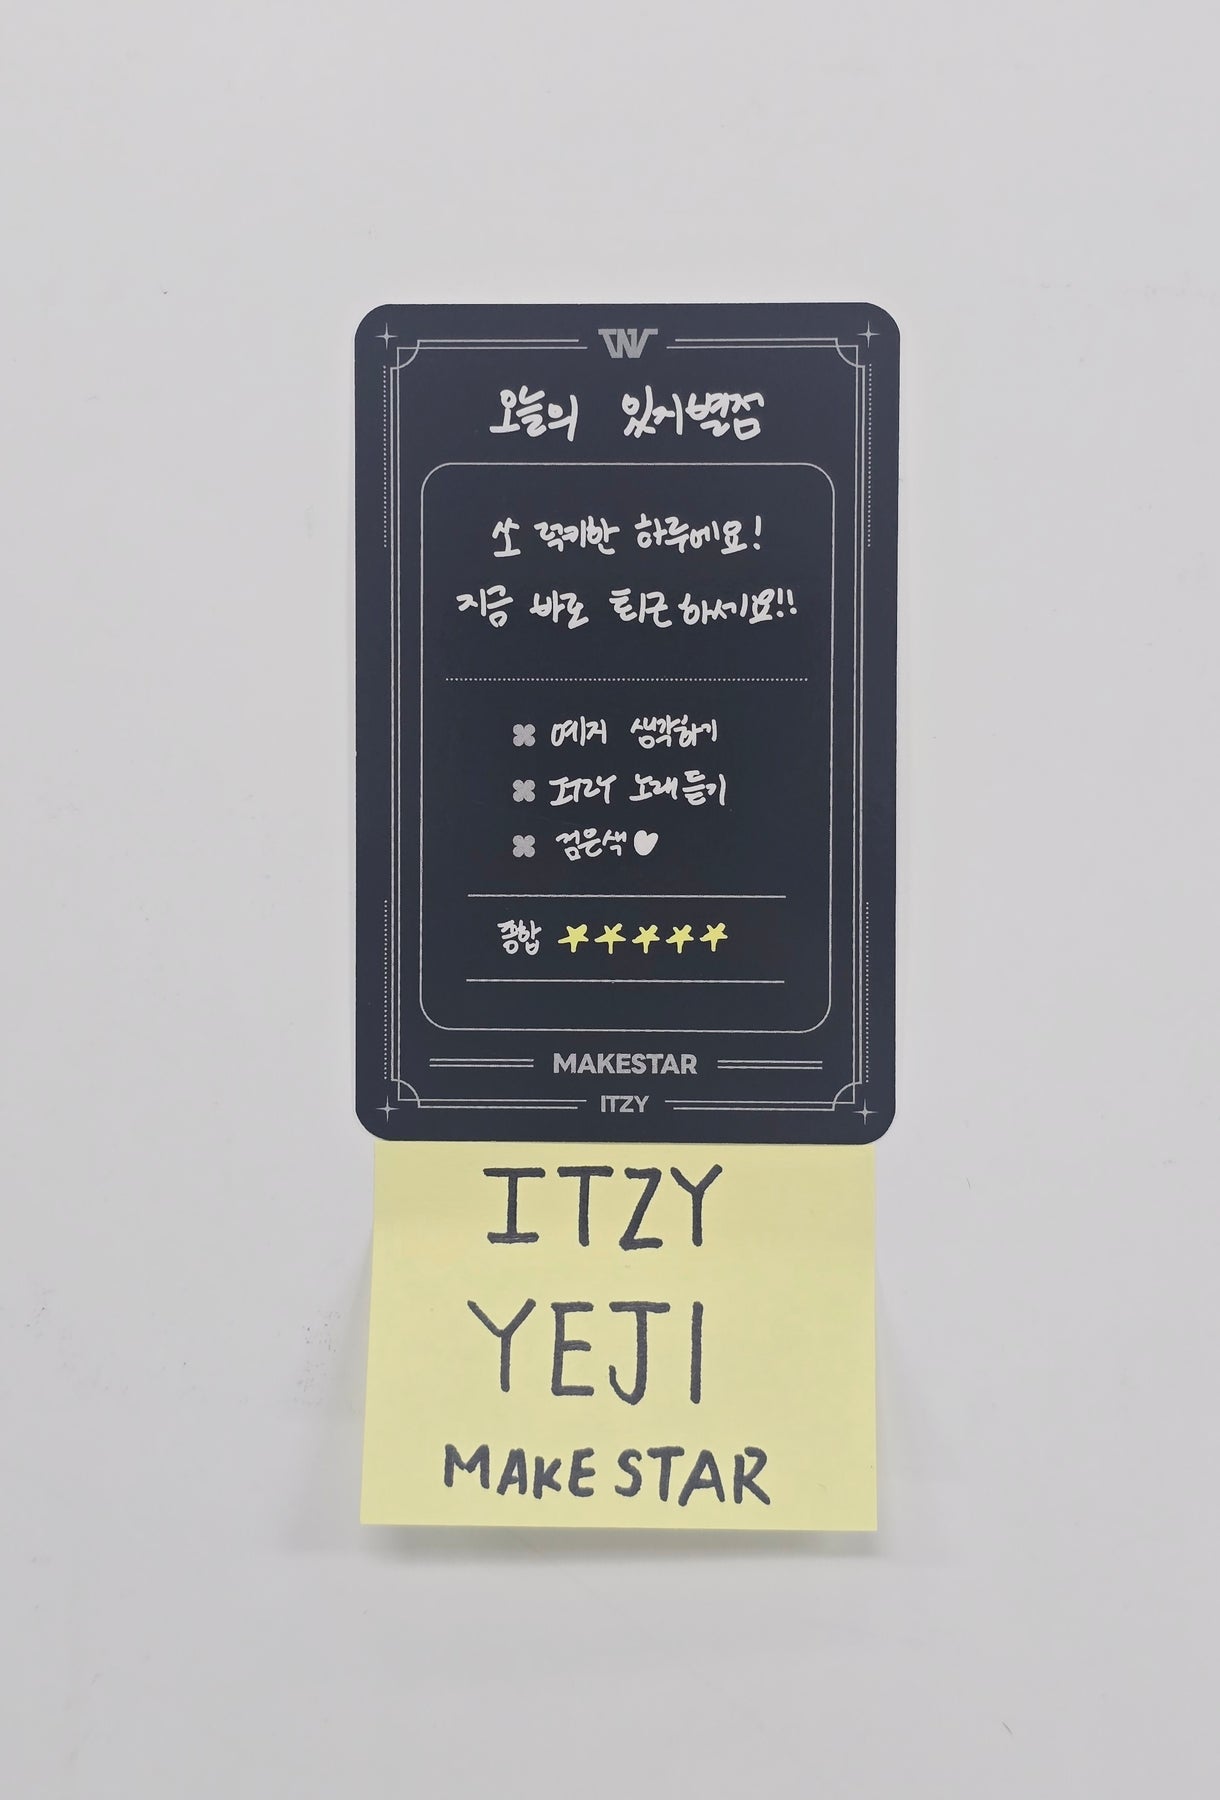 오늘의 있지별점
쏘 럭키한 하루에요!
지금 바로 퇴근하세요!!
예지 생각하기
ITZY 노래 듣기
검은색♥
종합 ★★★★★
MAKESTAR
ITZY
ITZY
YEJI
MAKESTAR